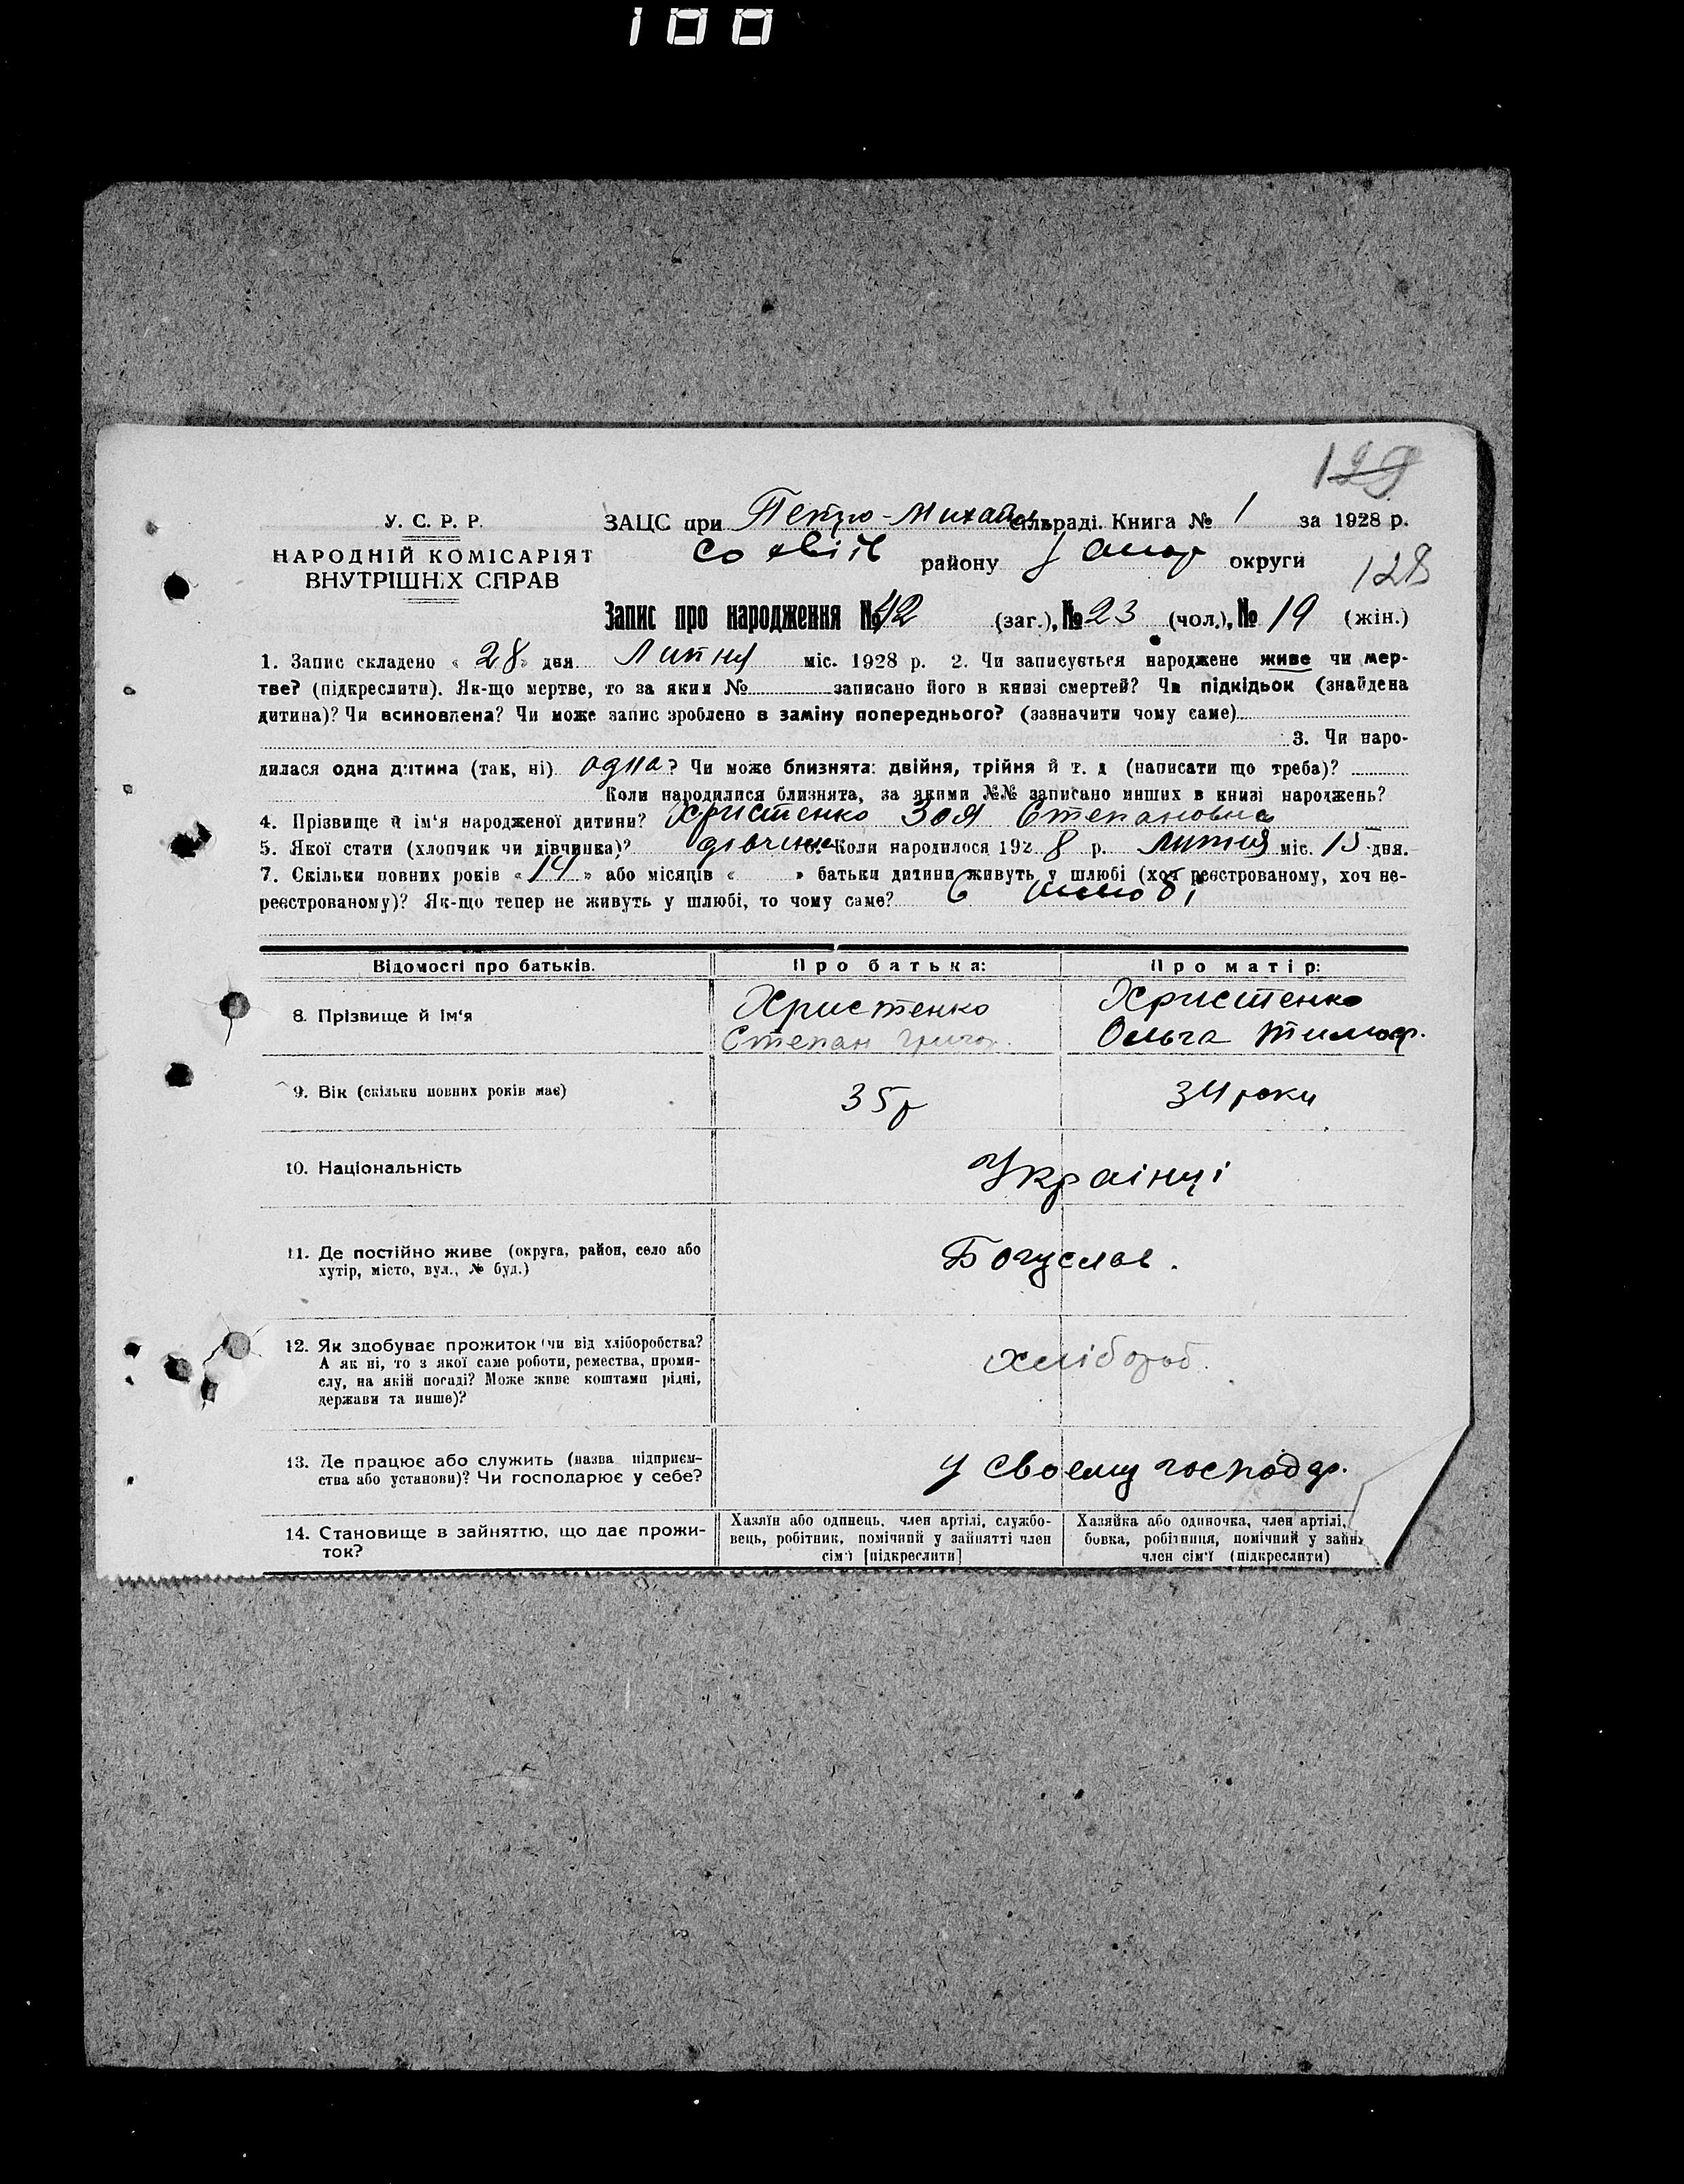 100
129
У. С. Р. Р.
НАРОДНІЙ КОМІСАРІЯТ
ВНУТРІШНІХ СПРАВ
ЗАЦС при Петро-Михайл сільраді. Книга № 1 за 1928 р.
району Запор округи
128
Запис про народження № 42 (заг.), № 23 (чол.), № 19 (жін.)
1. Запис складено « 28 » дня Липня міс. 1928 р. 2. Чи записується народжене живе чи мер-
тве? (підкреслити). Як-що мертве, то за яким № записано його в книзі смертей? Чи підкідьок (знайдена
дитина)? Чи всиновлена? Чи може запис зроблено в заміну попереднього? (зазначити чому саме)
3. Чи наро-
дилася одна дитина (так, ні) одна? Чи може близнята: двійня, трійня й т. д (написати що треба)?
Коли народилися близнята, за якими №№ записано инших в книзі народжень?
4. Прізвище й ім'я народженої дитини? Христенко Зоя Степановна
5. Якої стати (хлопчик чи дівчинка)? дівчинка 6. Коли народилося 192 8 р. Липня міс. 15 дня.
7. Скільки повних років « 14 » або місяців « » батьки дитини живуть у шлюбі (хоч реєстрованому, хоч не-
реєстрованому)? Як-що тепер не живуть у шлюбі, то чому саме? в шлюбі
Відомості про батьків. Про батька: Про матір:
8. Прізвище й ім'я
Христенко
Степан Григор.
Христенко
Ольга Тимоф.
9. Вік (скільки повних років має) 35 р 34 роки
10. Національність Украінці
11. Де постійно живе (округа, район, село або
хутір, місто, вул., № буд.)
Богуслав.
12. Як здобуває прожиток (чи від хліборобства?
А як ні, то з якої саме роботи, ремества, проми-
слу, на якій посаді? Може живе коштами рідні,
держави та инше)?
хлібороб.
13. Де працює або служить (назва підприєм-
ства або установи)? Чи господарює у себе?
у своему господар.
14. Становище в зайняттю, що дає прожи-
ток?
Хазяїн або одинець, член артілі, службо-
вець, робітник, помічний у зайнятті член
сім'ї [підкреслити]
Хазяйка або одиночка, член артілі,
бовка, робітниця, помічний у зайн
член сім'ї (підкреслити)